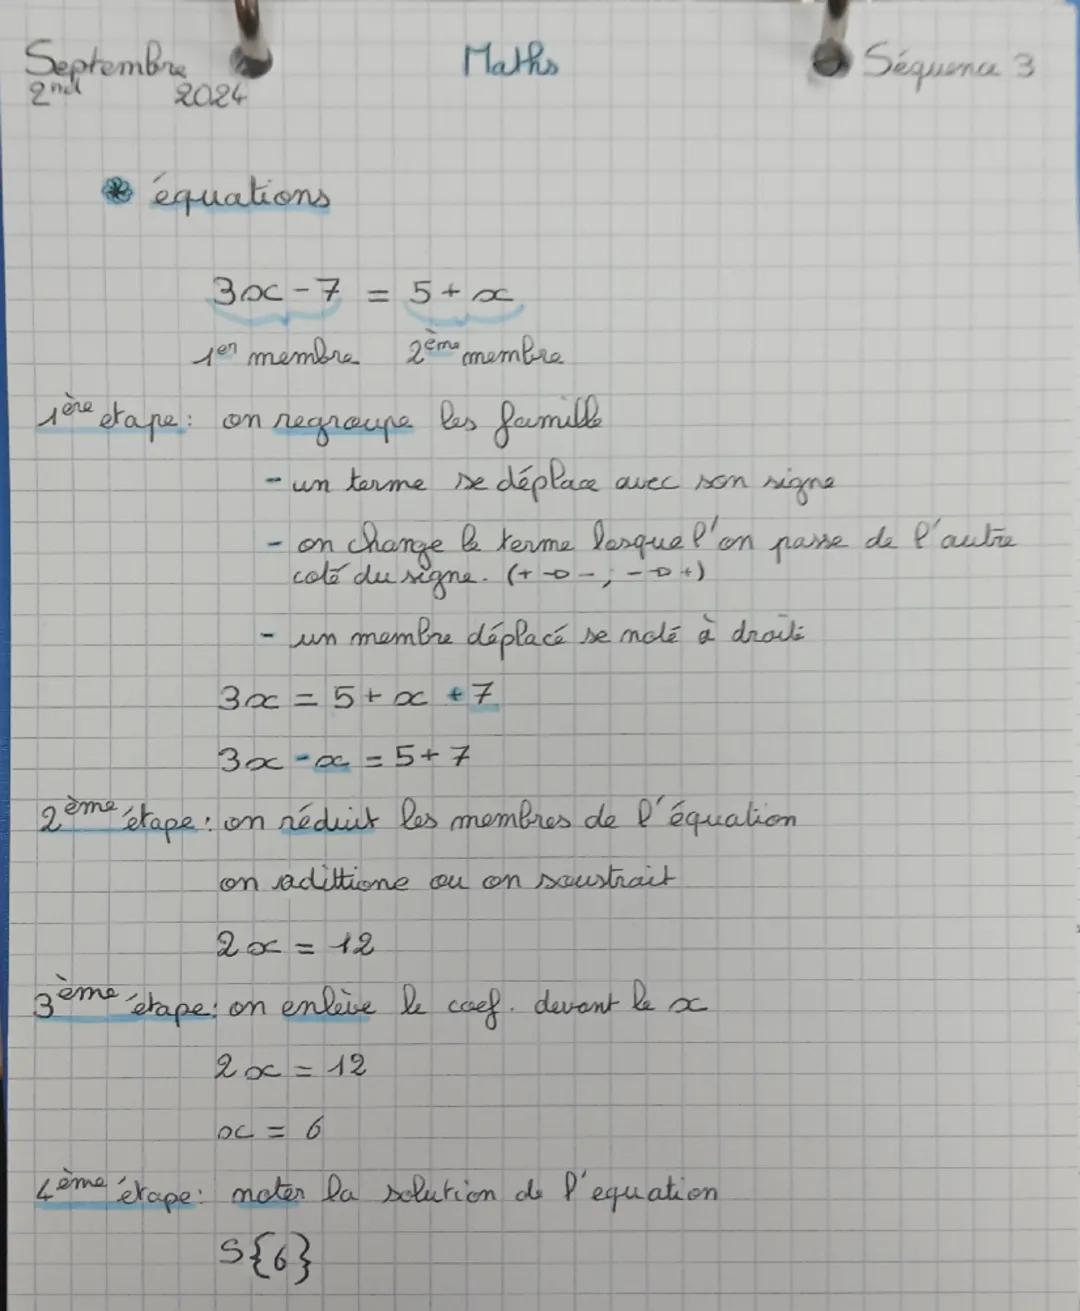 Septembre
2nd 2024
Maths
Séquence 3
équations
3x - 7 = 5 + x
1er membre 2ème membre
1ère etape : on regroupe les famille
- un terme se déplace avec son signe
- on change le terme lorsque l'on passe de l'autre
coté du signe. (+ → - ; - → +)
- un membre déplacé se note à droite
3x = 5 + x + 7
3x - x = 5 + 7
2ème étape : on réduit les membres de l'équation
on adittione ou on soustrait
2x = 12
3ème étape : on enlève le coef. devant le x
2x = 12
x = 6
4ème étape : noter la solution de l'equation
S{6}